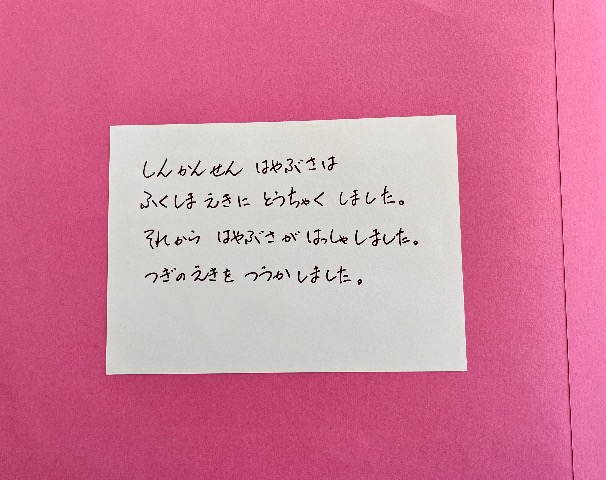 しんかんせん はやぶさは
ふくしまえきに とうちゃく しました。
それから はやぶさが はっしゃしました。
つぎのえきを つうかしました。